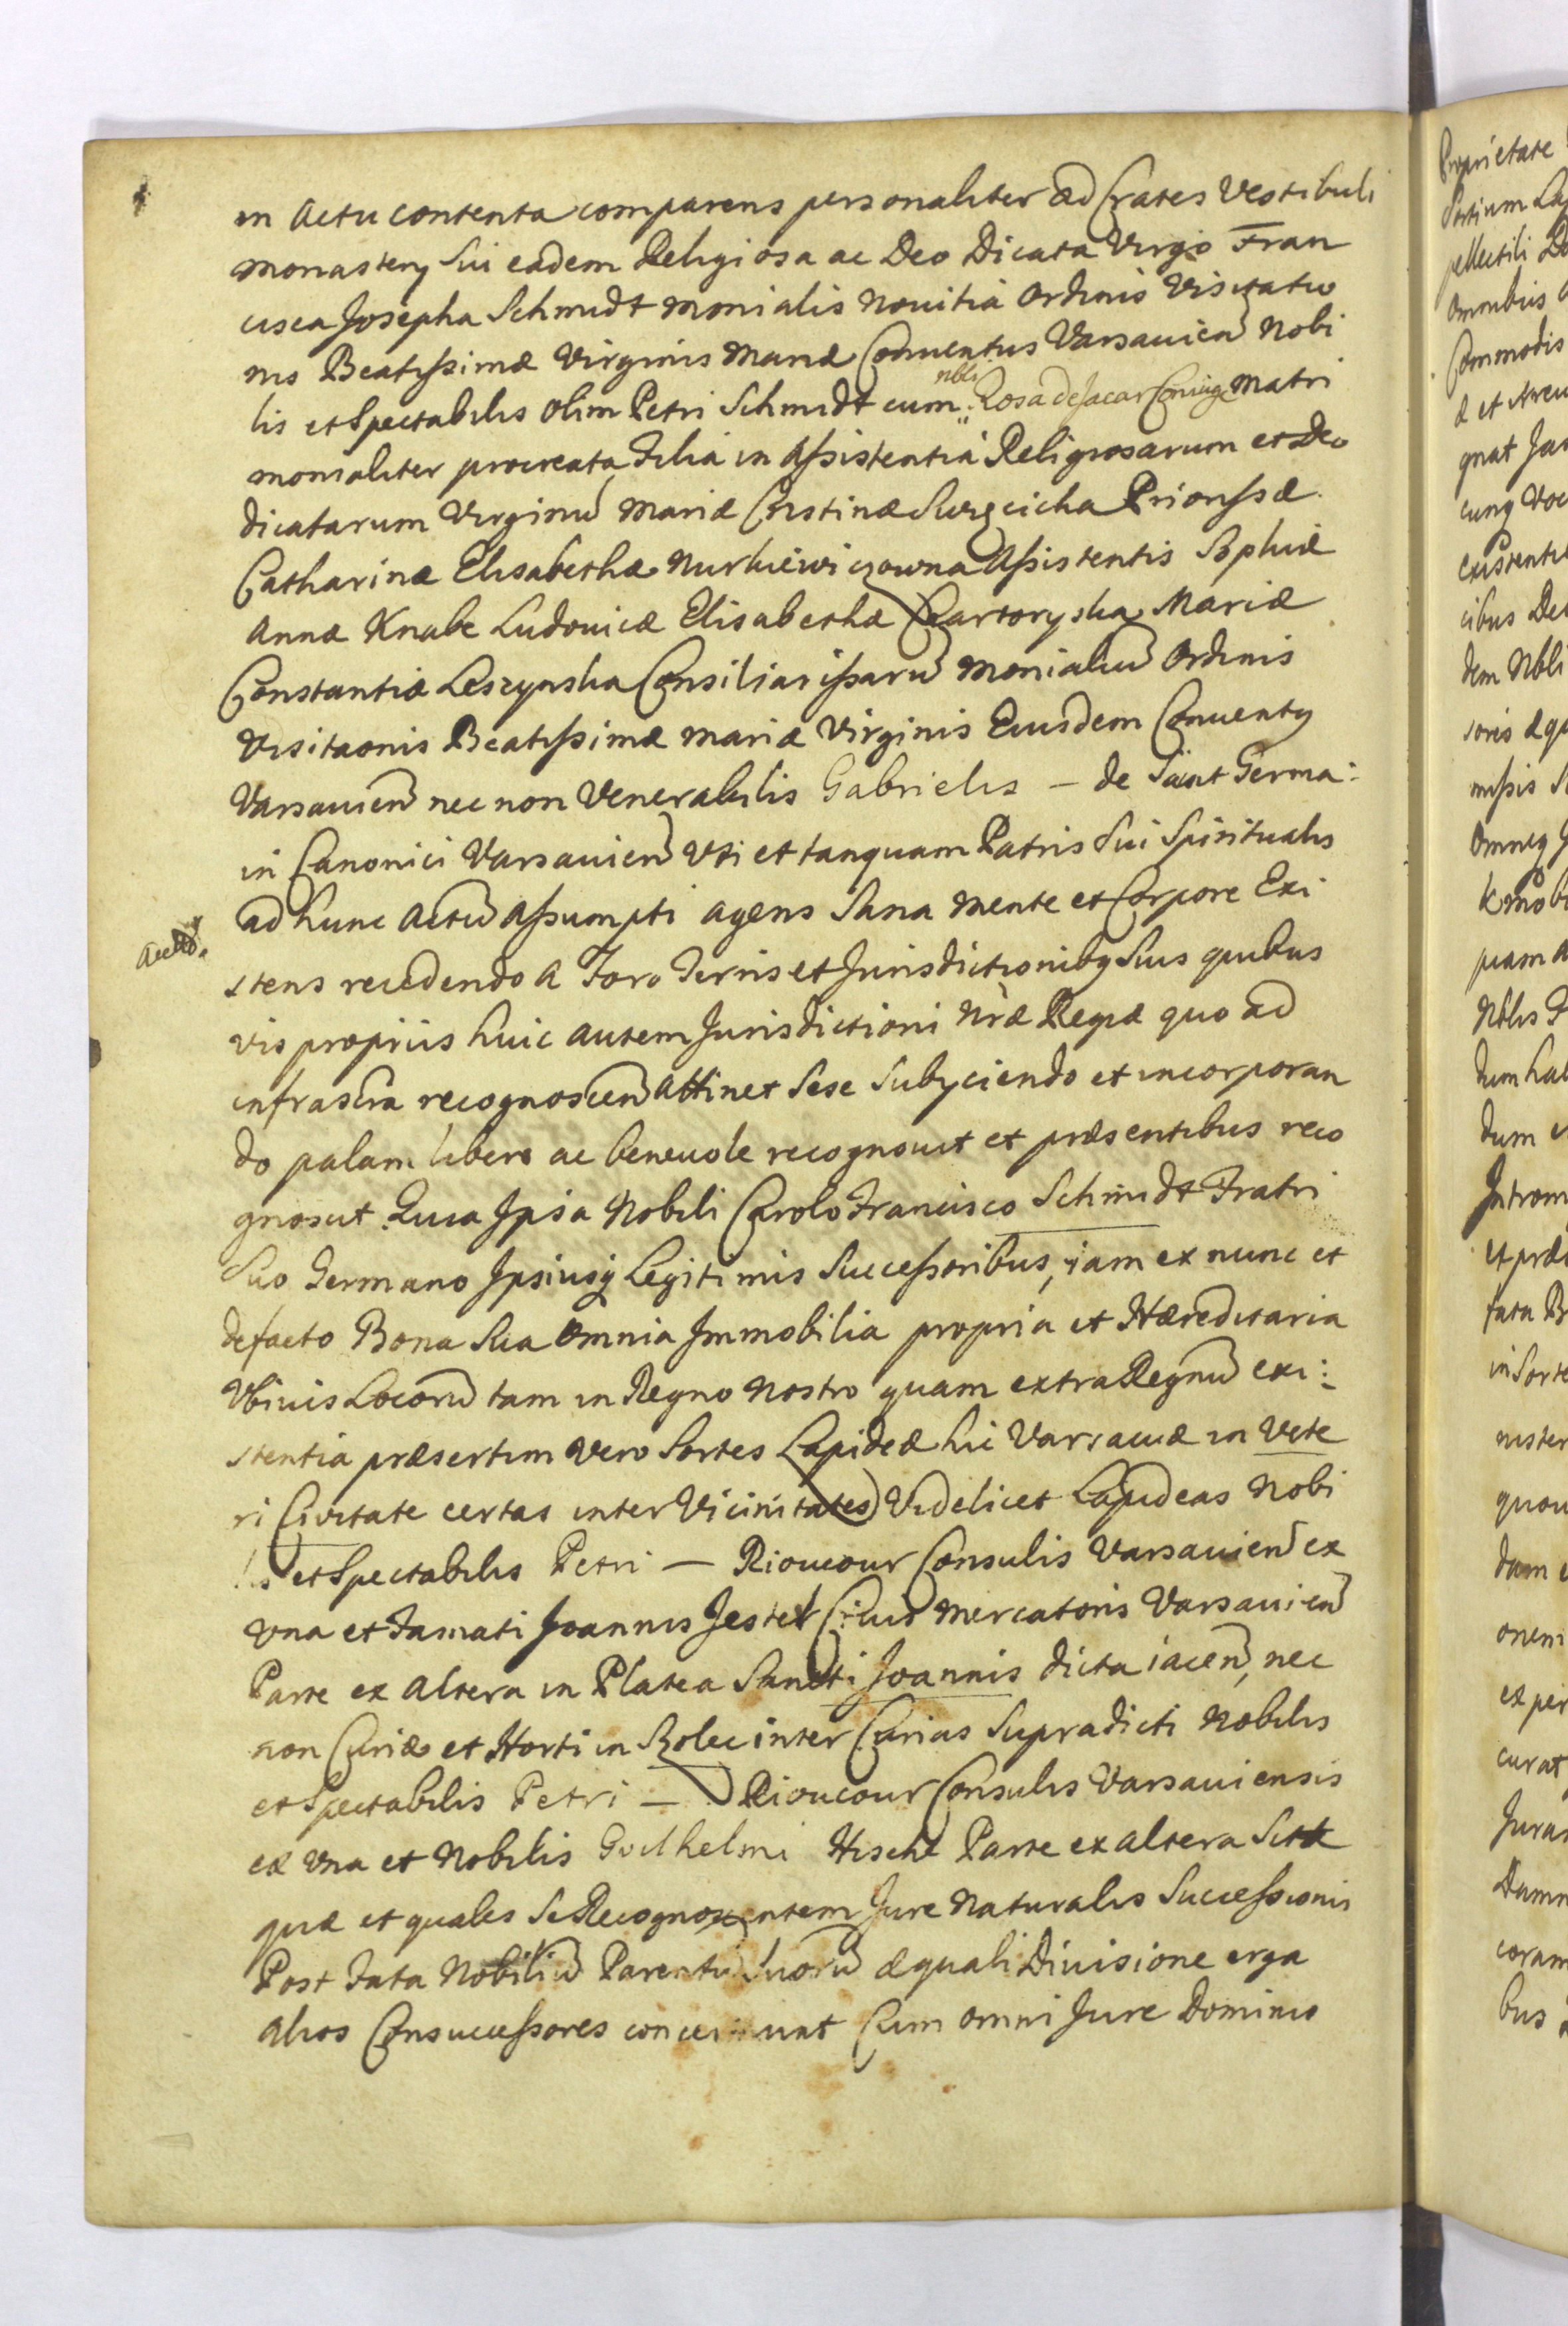 in Actu contenta comparens personaliter ad Crates Vestibuli
Monastery Sui eadem Religiosa ac Deo Dicata Virgo Fran
cisca Josepha Schmidt Monialis Nouitia Ordinis Visitatio
nis Beatissimæ Virginis Mariæ Conuentus Varsauien Nobi
lis et Spectabilis olim Petri Schmidt cum nbli Rosa de Jacar Coniuge Matri
monialiter procreata Filia in Assistentia Religiosarum et Deo
dicatarum Virginu Mariæ Cristinæ Prioressæ
Catharinæ Elisabethæ Nurkiewiczowna Assistentis Sophiæ
Annæ Knabe Ludouicæ Elisabethæ Czartoryska Mariæ
Constantiæ Leszynska Consiliarissaru Monialiu Ordinis
Visitaonis Beatissimæ Mariæ Virginis Eiusdem Conuentg
Varsauien nec non Venerabilis Gabrielis – de Saint Germa:
in Canonici Varsauien Uti et tanquam Patris Sui Spiritualis
ad hunc Actu Assumpti agens Sana Mente et Corpore Exi
stens recedendo A Foro Terris et Jurisdictionibg Suis quibus
vis propriis huic autem Jurisdictioni Nræ Regiæ quo ad
infrascra recognoscen Attinet Sese Subyciendo et incorporan
do palam libere ac beneuole recognouit et præsentibus reco
gnoscit Quia Ipsa Nobili Carolo Francisco Schmidt Fratri
Suo Germano Ipsiusq Legitimis Successoribus, iam ex nunc et
defacto Bona Sua Omnia Immobilia propria et Hæreditaria
Ubiuis Locoru tam in Regno Nostro quam extra Regnu exi:
stentia præsertim vero Sortes Lapideæ hic Varsauiæ in Vete
ri Ciuitate certas inter Vicinitates Videlicet Lapideas Nobi
lis et Spectabilis Petri – Rioucour Consulis Varsauien ex
Vna et Famati Joannis Jestel Ciuis Mercatoris Varsauien
Parte ex Altera in Platea Sancti Joannis dicta iacen, nec
non Curiæ et Horti in Solec inter Curias Supradicti Nobilis
et Spectabilis Petri – Rioucour Consulis Varsauiensis
ex Vna et Nobilis Guilhelmi Parte ex Altera
quæ et quales Se Recognoscentem Jure Naturalis Successionis
Post Fata Nobiliu Parentu Suoru æquali Diuisione erga
Alios Consuccessores concernunt Cum Omni Jure Dominio